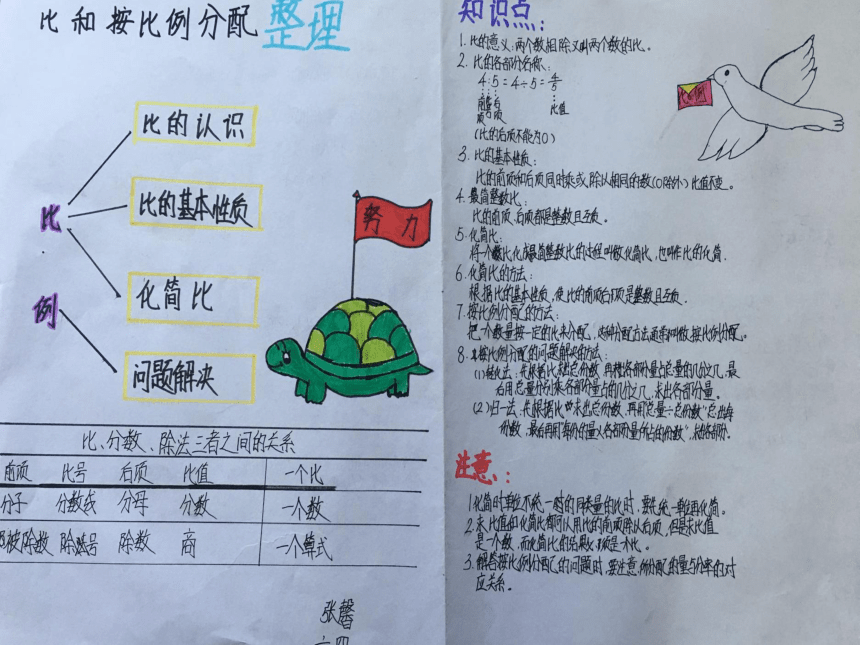 比和按比例分配 整理
比的认识
比的基本性质
化简比
问题解决
比
例
努力
比、分数、除法三者之间的关系
前项 比号 后项 比值 一个比
分子 分数线 分母 分数 一个数
被除数 除号 除数 商 一个算式
张馨
六四
知识点:
1. 比的意义:两个数相除又叫两个数的比。
2. 比的各部分名称:
4:5=4÷5=4/5
前项 比号 后项 比值
(比的后项不能为0)
3. 比的基本性质:
比的前项和后项同时乘或除以相同的数(0除外)比值不变。
4. 最简整数比:
比的前项、后项都是整数且互质。
5. 化简比:
将一个数比化成最简整数比的过程叫做化简比,也叫作比的化简.
6. 化简比的方法:
根据比的基本性质,使比的前项后项是整数且互质.
7. 按比例分配的方法:
把一个数量按一定的比来分配,这种分配方法通常叫做按比例分配。
8. 按比例分配的问题解决的方法:
(1)转化法:先根据比求总份数,再求各部分量占总量的几分之几,最
后用总量分别乘各部分量占的几分之几,求出各部分量。
(2)归一法,先根据比"求出总份数,再用"总量÷总份数"求出每
份数,最后再用"每份的量×各部分量所占的份数",求出各部分.
比例
注意:
1. 化简时单位不统一时的同类量的比时,要先统一单位再化简。
2. 求比值和化简比都可以用比的前项除以后项,但是求比值
是一个数,而化简比的结果必须是个比。
3. 解答按比例分配的问题时,要注意所分配的量与分率的对
应关系。